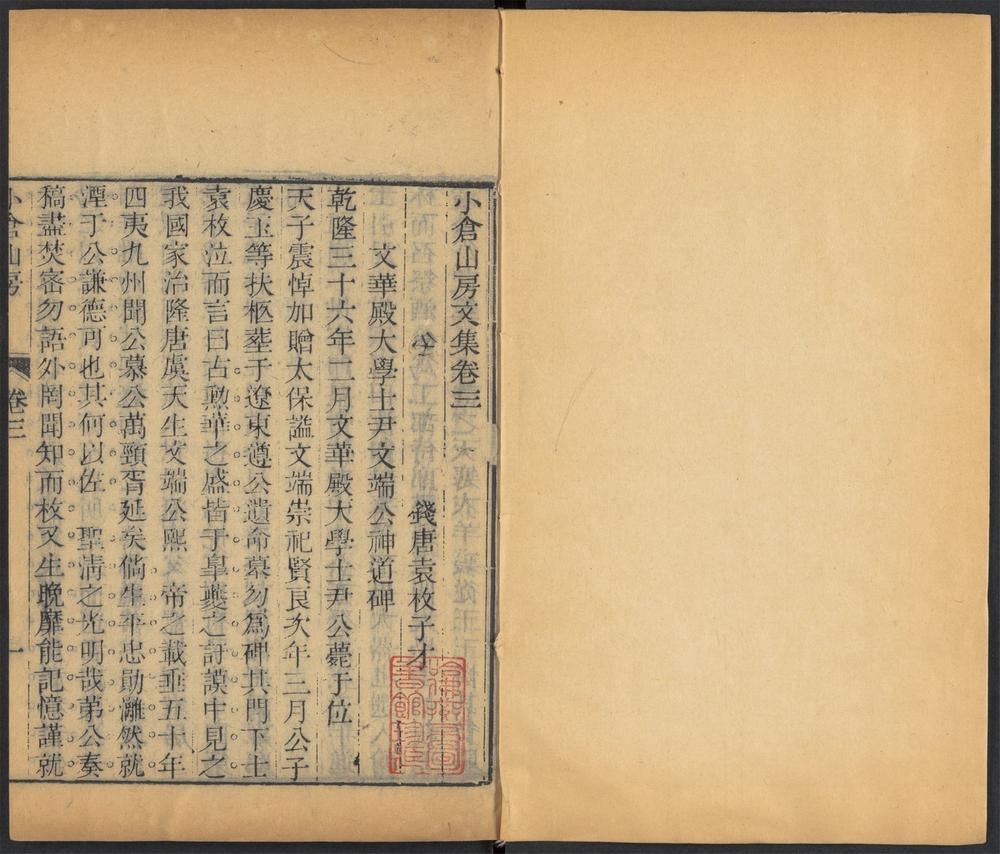 小倉山房文集卷三
錢唐袁枚子才
文華殿大學士尹文端公神道碑
乾隆三十六年二月文華殿大學士尹公薨于位
天子震悼加贈太保諡文端崇祀賢良次年三月公子
慶玉等扶柩塟于遼東遵公遺命墓勿爲碑其門下士
袁枚泣而言曰古勲華之盛皆于臯夔之訏謨中見之
我國家治隆唐虞天生文端公熙 帝之載垂五十年
四夷九州聞公慕公萬頸胥延矣倘生平忠勛灕然就
湮于公謙德可也其何以佐 聖淸之光明哉第公奏
稿盡焚密勿語外罔聞知而枚又生晚靡能記憶謹就
小倉山房
卷三
一